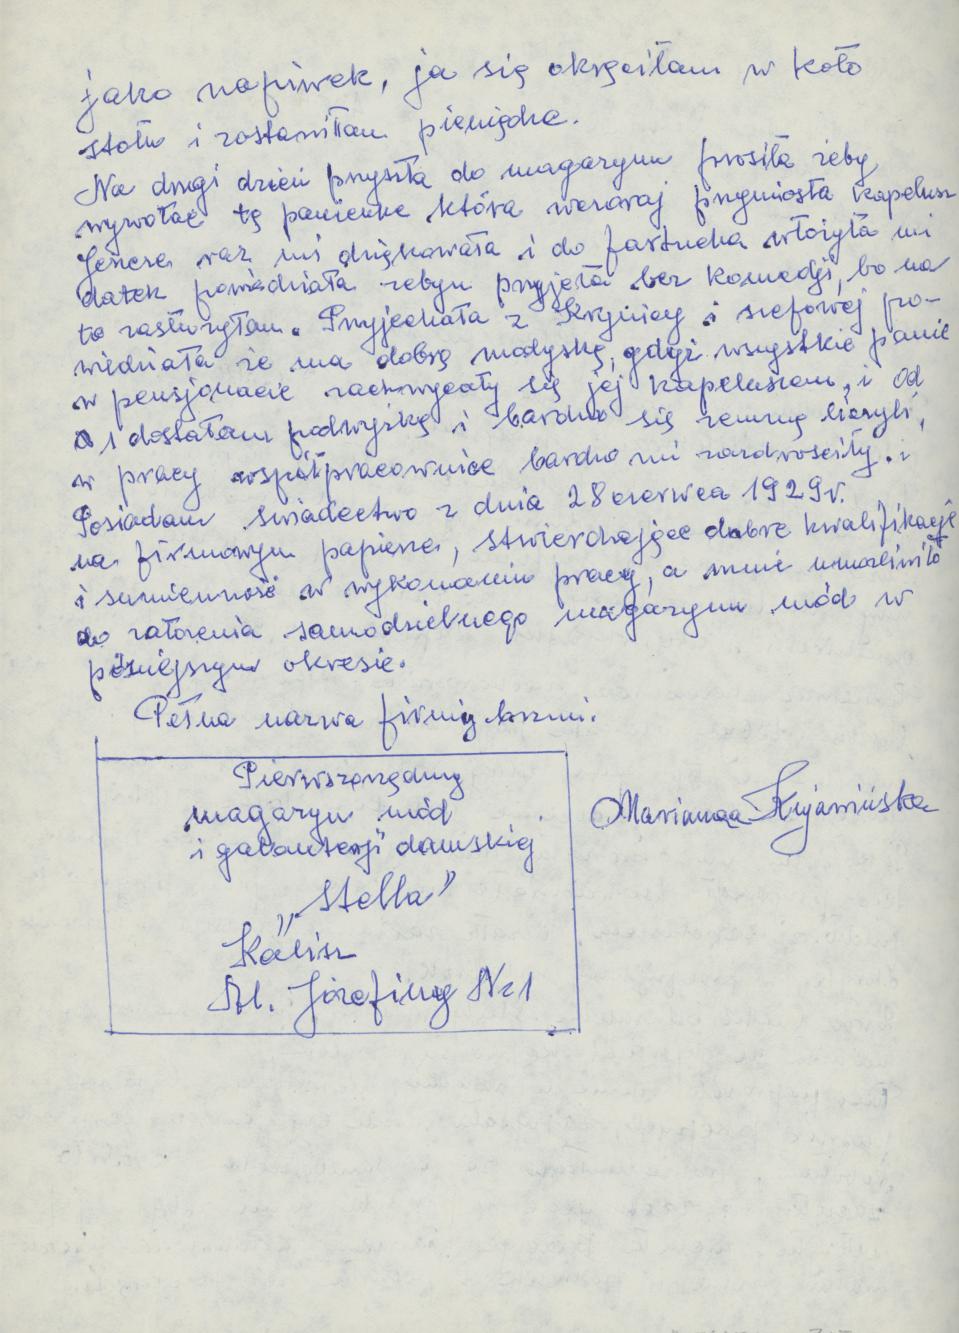 jako napiwek, ja się okręciłam w koło
stołu i zostawiłam pieniądze.
Na drugi dzień przyszła do magazynu prosiła żeby
wywołać tę panienkę która wczoraj przyniosła kapelusz
Jeszcze raz mi dziękowała i do fartucha włożyła mi
datek powiedziała żebym przyjęła bez komedji, bo na
to zasłużyłam. Przyjechała z Krynicy i szefowej po-
wiedziała że ma dobrą modystkę, gdyż wszystkie panie
w pensjonacie zachwycały się jej kapeluszem, i od
1 dostałam podwyżkę i bardzo się zemną liczyli,
w pracy współpracownice bardzo mi zazdrościły. i
Posiadam świadectwo z dnia 28 czerwca 1929 r.
na firmowym papierze, stwierdzające dobre kwalifikacje
i sumienność w wykonaniu pracy, a mnie umożliwiło
do założenia samodzielnego magazynu mód w
późniejszym okresie.
Pełna nazwa firmy brzmi.
Pierwszorzędny
magazyn mód
i galanterji damskiej
„Stella”
Kalisz
Al. Józefiny Nr 1
Marianna Kujawińska